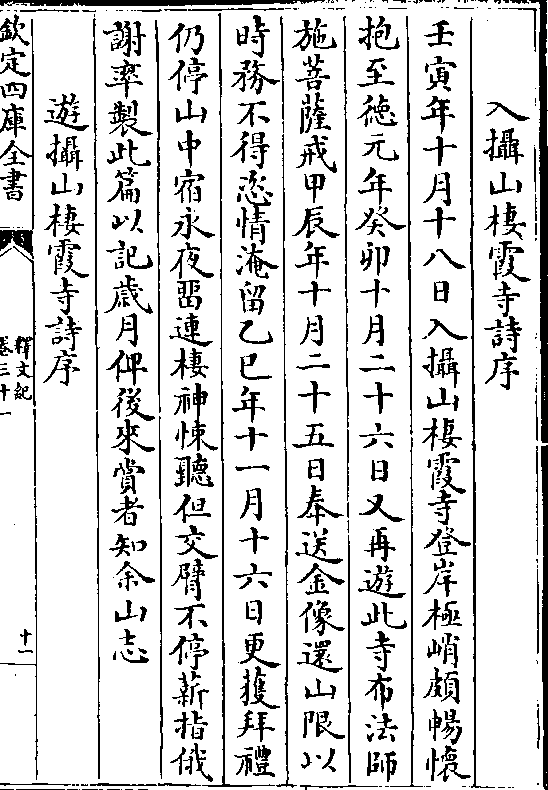 入攝山棲霞寺詩序
壬寅年十月十八日入攝山棲霞寺登岸極峭頗暢懷
抱至德元年癸卯十月二十六日又再遊此寺布法師
施菩薩戒甲辰年十月二十五日奉送金像還山限以
時務不得恣情淹留乙巳年十一月十六日更獲拜禮
仍停山中宿永夜畱連棲神悚聽但交臂不停薪指俄
謝率製此篇以記歲月俾後來賞者知余山志
遊攝山棲霞寺詩序
欽定四庫全書
釋文紀
卷三十一
十一